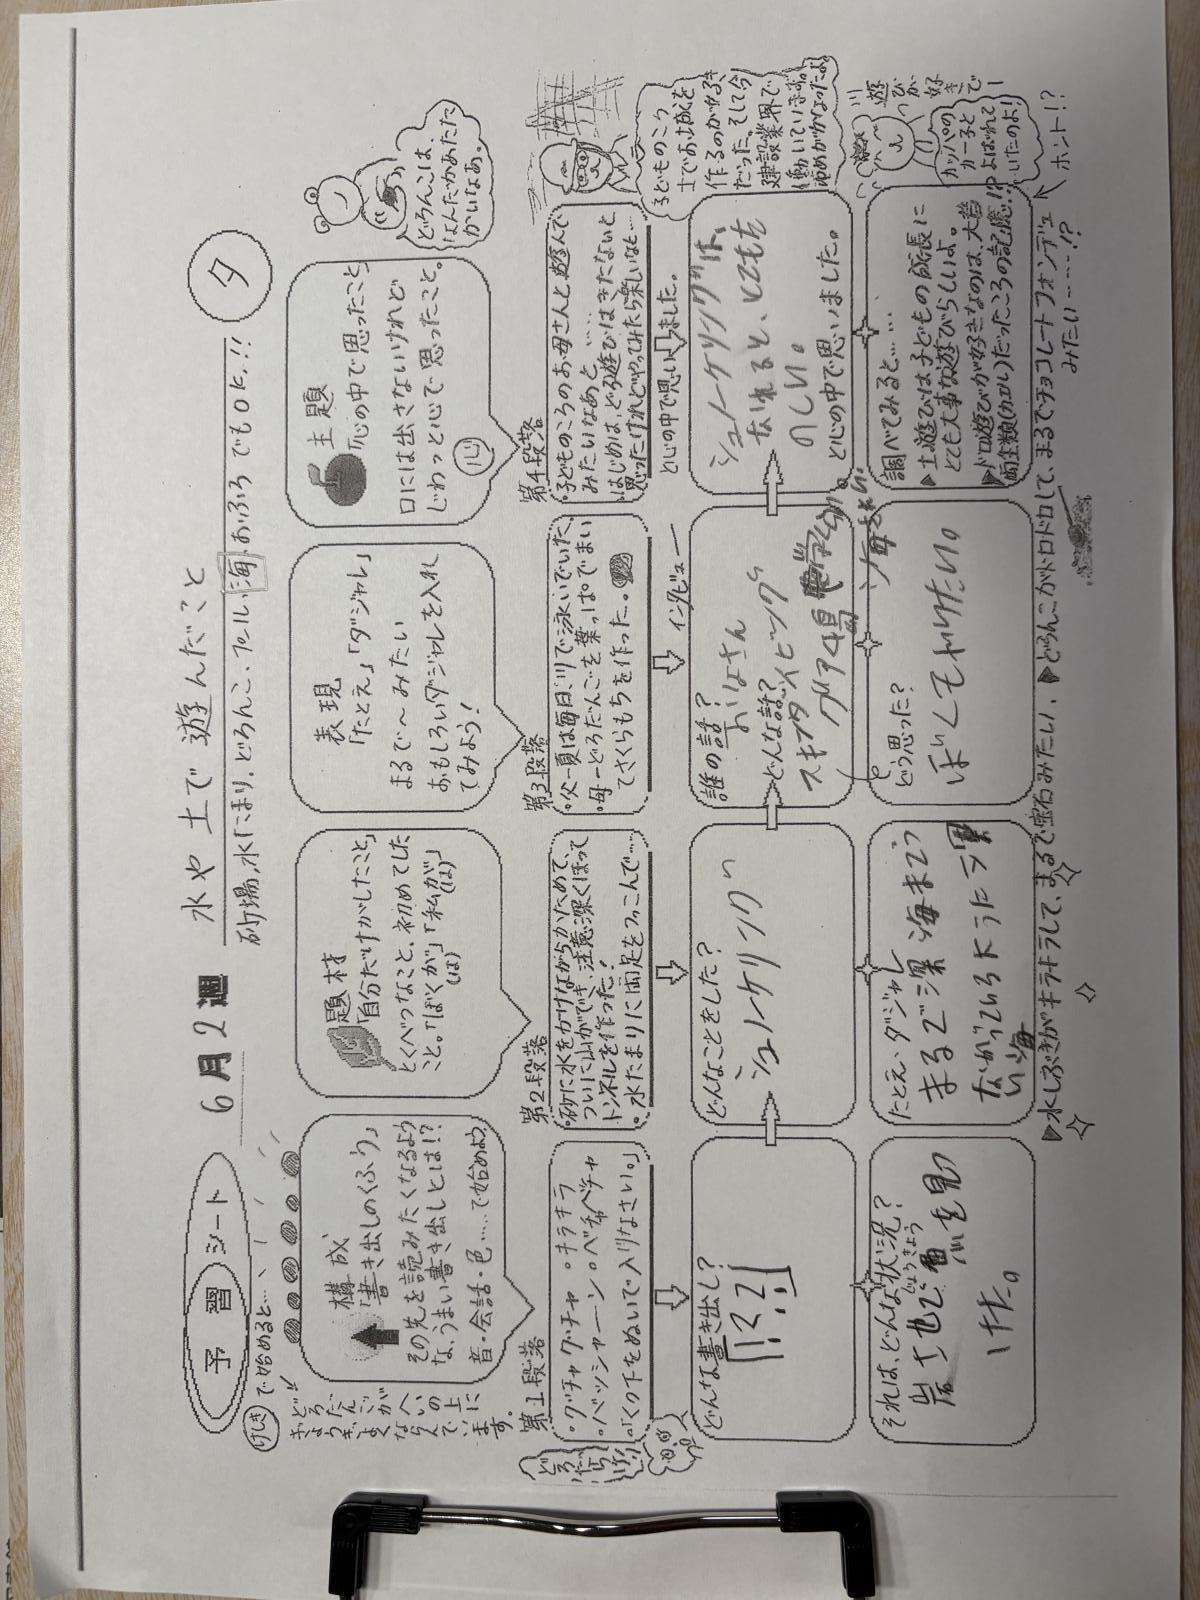 予習シート
6月2週
水や土で遊んだこと
砂場、水たまり、どろんこ、プール、海、おふろでもOK!!
夕
けしきで始めると…
どろだんごが
ぎょうぎよく
へいの上に
ならんでい
ます。
構成
「書き出しのくふう」
その先を読みたくなるよう
な、うまい書き出しとは!?
音・会話・色……で始めよう
題材
「自分だけがしたこと」
とくべつなこと、初めてした
こと。「ぼくが」「私が」
(は) (は)
表現
「たとえ」「ダジャレ」
まるで〜みたい
おもしろいダジャレを入れ
てみよう!
主題
「心の中で思ったこと」
口には出さないけれど
じわっと心で思ったこと。
心
どろんこは、
なんだかあたた
かいなぁ。
第1段落
・グチャグチャ ・キラキラ
・バッシャーン ・ベチャベチャ
・「くつ下をぬいで入りなさい。」
第2段落
・砂に水をかけながらかためて、
ついに山ができ、注意深くほって
トンネルを作った!
・水たまりに両足をつっこんで…
第3段落
・父ー夏は毎日、川で泳いでいた。
・母ーどろだんごを葉っぱでまい
てさくらもちを作った。
第4段落
・子どものころのお母さんと遊んで
みたいなあと……
・はじめは、どろ遊びはきたないと
思ったけれどやってみたら楽しいなと…
と心の中で思いました。
インタビュー
子どものころ
土でお城を
作るのが好き
だった。そして今
建設業界で
働いています。
ゆめがかなったよ。
どんな書き出し?
どんなことをした?
シュノーケリング
誰の話?
おかあさん
どんな話?
スキューバダイビング
グアム島
シュノーケリングは、
なれると、とてもた
のしい。
と心の中で思いました。
それは、どんな状況?
じょうきょう
たとえ、ダジャレ
まるで深海まで
つながっているような深
い海
どう思った?
ぼくもやりたい。
調べてみると……
▶土遊びは子どもの成長に
とても大事な遊びらしいよ。
▶ドロ遊びが好きなのは、大昔
両生類(カエル)だったころの記憶!?
川遊びが
好きで
カッパの
カー子と
よばれて
いたのよ!
▶水しぶきがキラキラして、まるで宝石みたい、▶どろんこがドロドロして、まるでチョコレートフォンデュ
みたい……!?
ホント!?